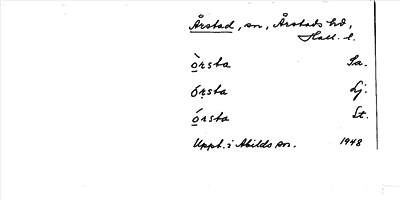 Årstad, sn, Årstads hd,
Hall. l.
ò̱rsta Sa.
órṣta Lj.
ó̱rsta St.
Uppt. i Abilds sn. 1948